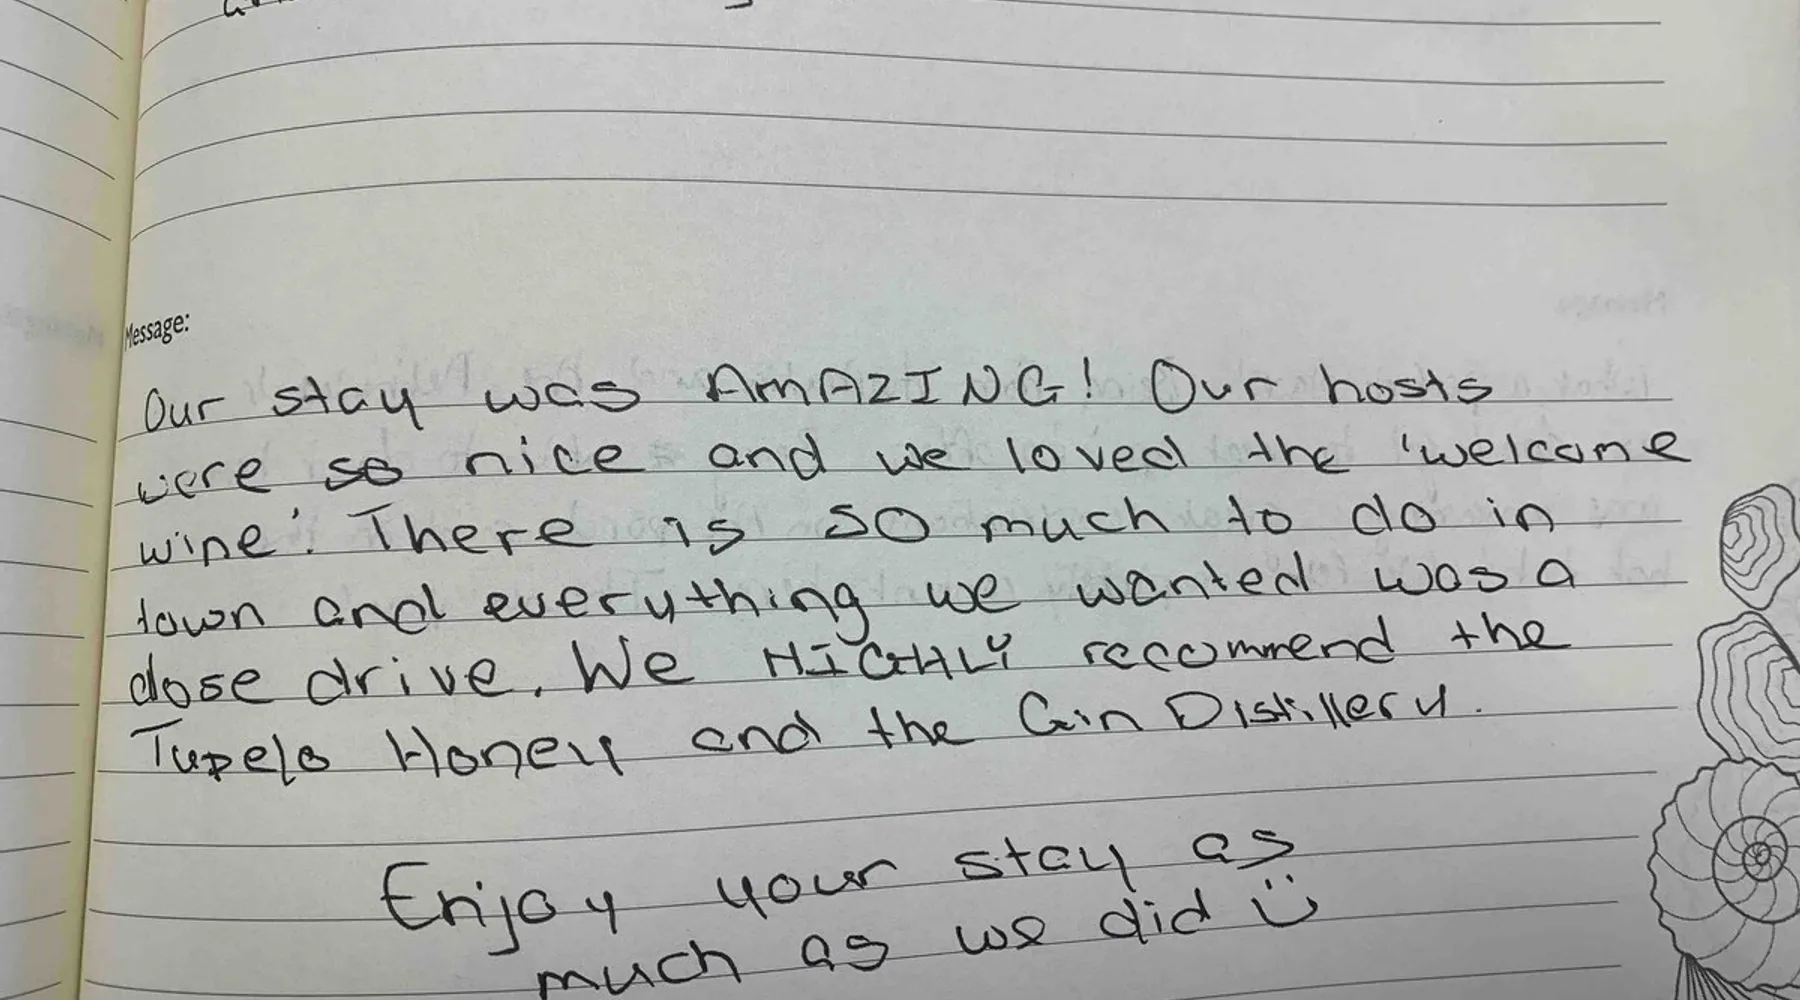 Message:
Our stay was AMAZING! Our hosts
were so nice and we loved the 'welcome
wine'. There is so much to do in
town and everything we wanted was a
close drive. We HIGHLY recommend the
Tupelo Honey and the Gin Distillery.
Enjoy your stay as
much as we did :)